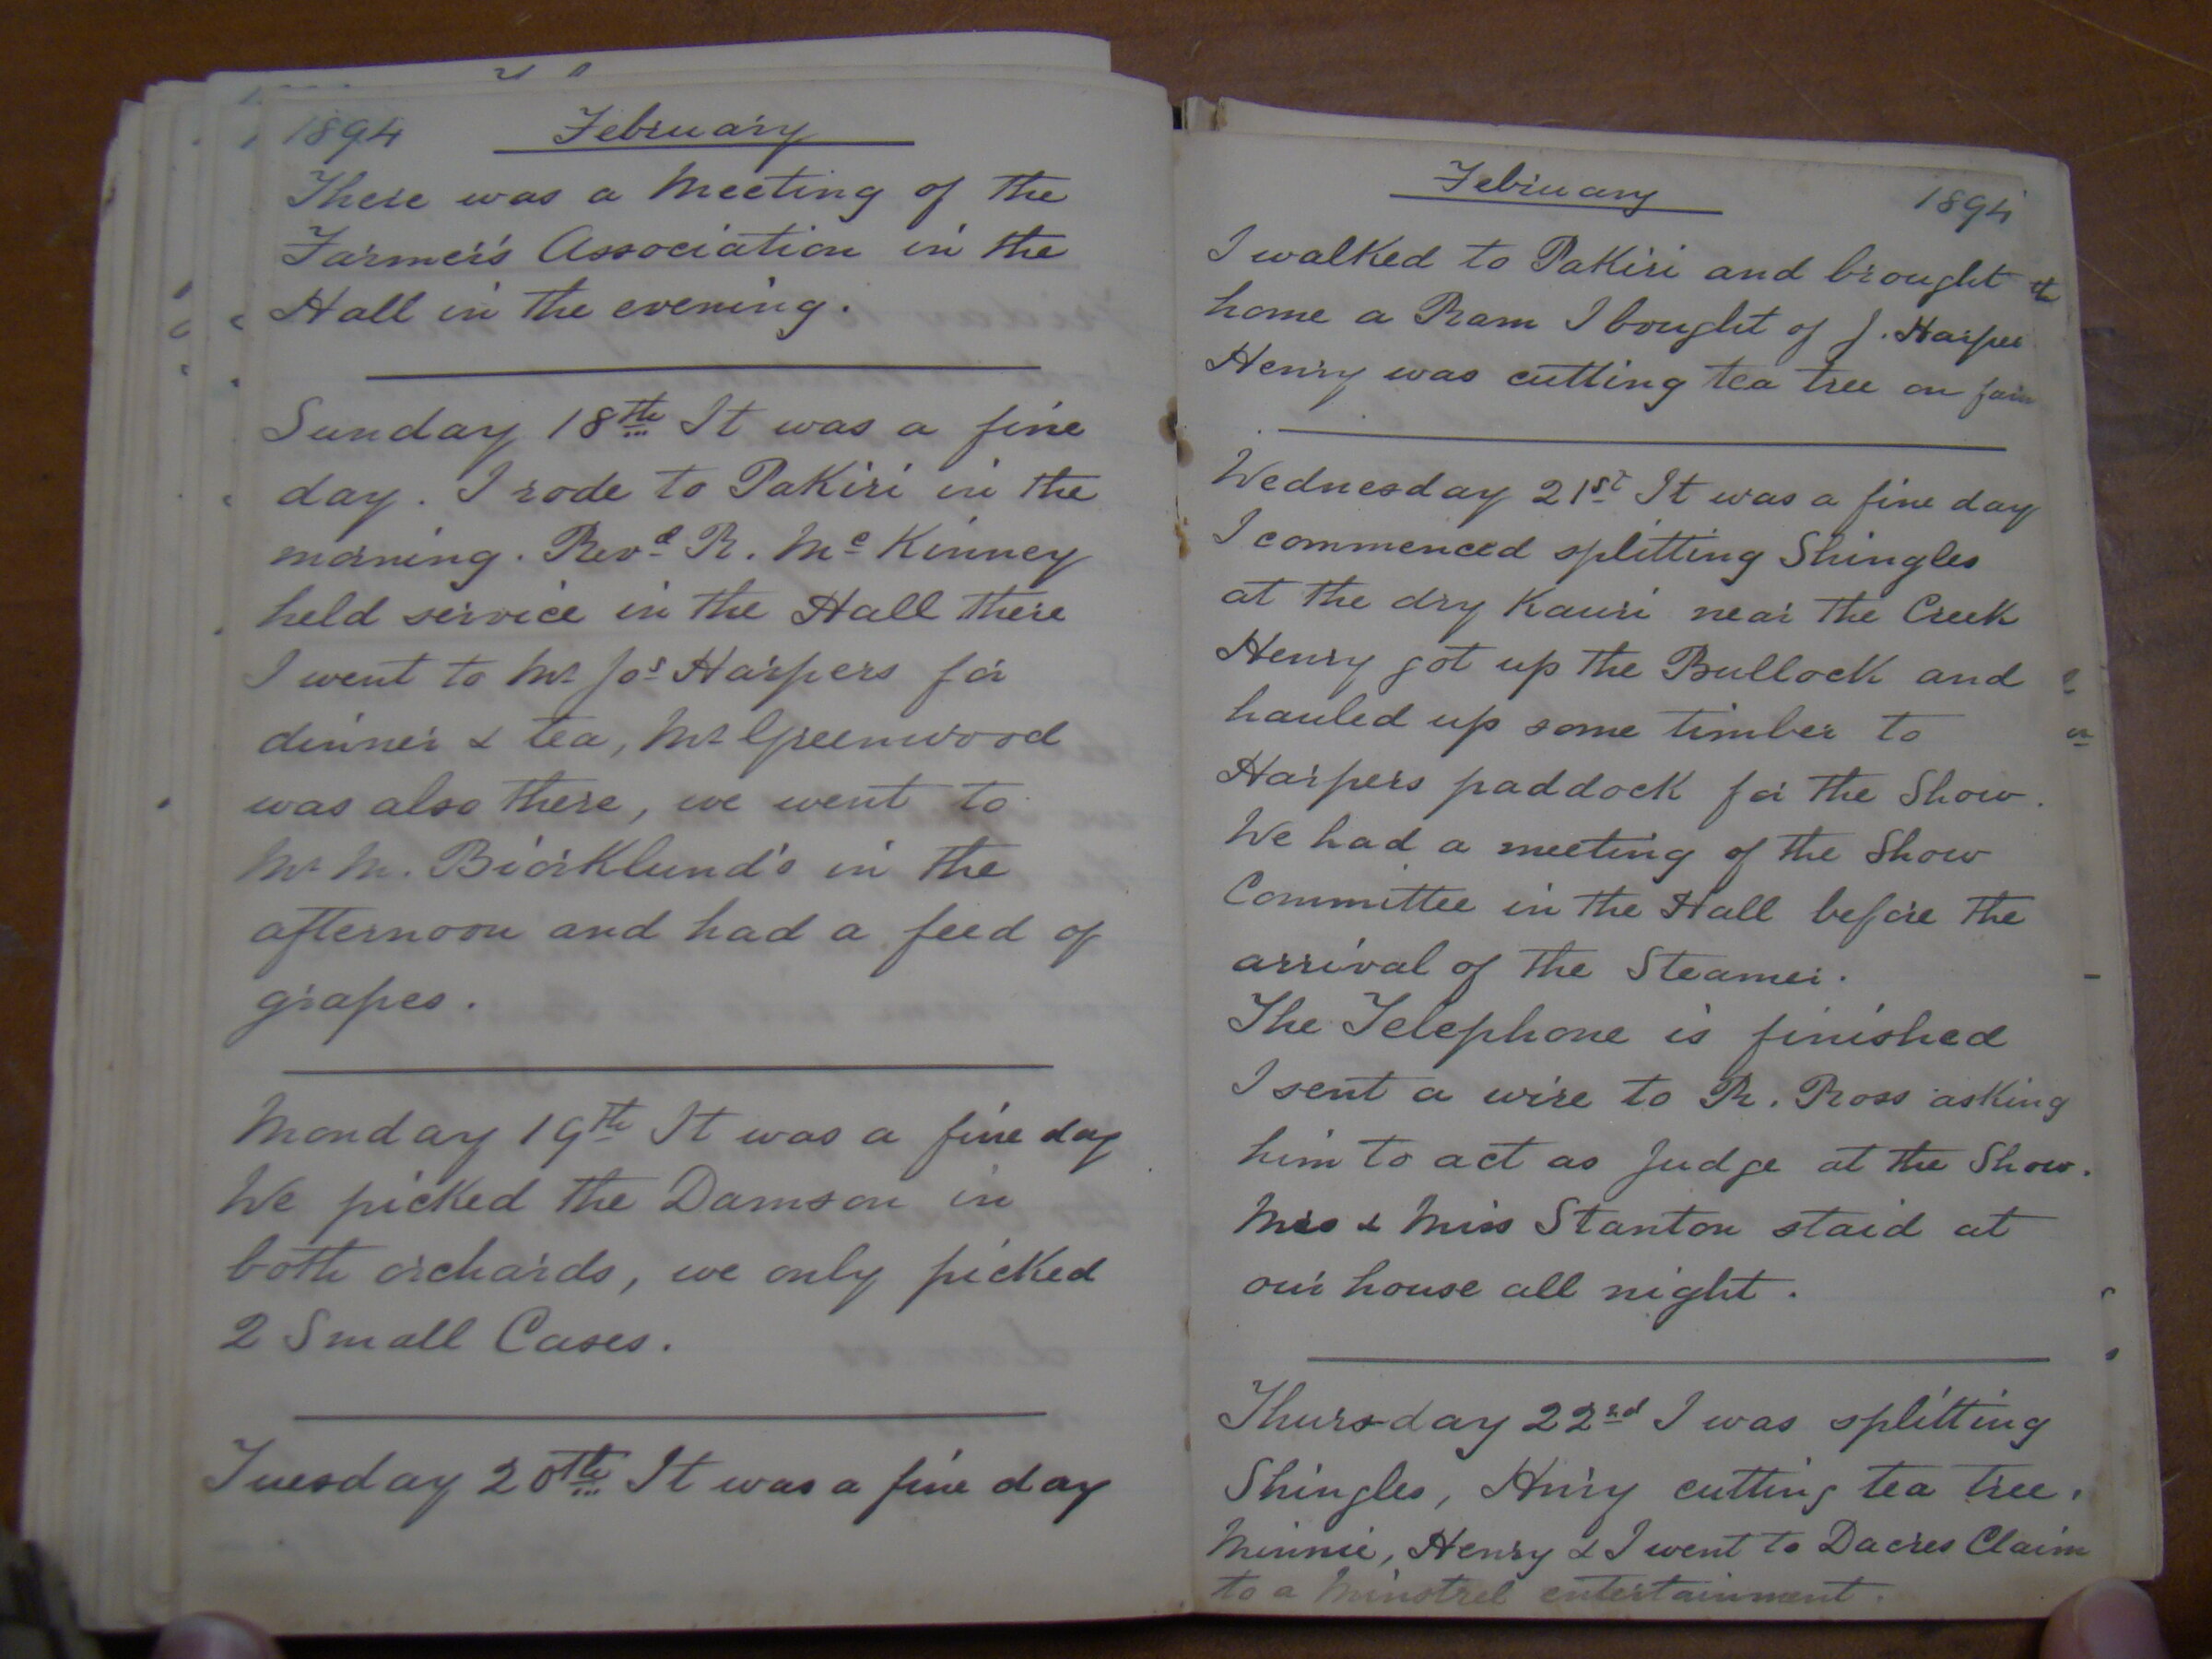 1894 February
There was a Meeting of the
Farmer's Association in the
Hall in the evening.
Sunday 18th It was a fine
day. I rode to Pakiri in the
morning. Revd R. Mc Kinney
held service in the Hall there
I went to Mr Jos Harpers for
dinner & tea, Mr Greenwood
was also there, we went to
Mr M. Biorklund's in the
afternoon and had a feed of
grapes.
Monday 19th It was a fine day
We picked the Damson in
both orchards, we only picked
2 Small Cases.
Tuesday 20th It was a fine day
February 1894
I walked to Pakiri and brought
home a Ram I bought of J. Harper
Henry was cutting tea tree on
Wednesday 21st It was a fine day
I commenced splitting Shingles
at the dry Kauri near the Creek
Henry got up the Bullock and
hauled up some timber to
Harpers paddock for the Show.
We had a meeting of the Show
Committee in the Hall before the
arrival of the Steamer.
The Telephone is finished
I sent a wire to R. Ross asking
him to act as Judge at the Show.
Mrs & Miss Stanton staid at
our house all night.
Thursday 22nd I was splitting
Shingles, Hnry cutting tea tree.
Minnie, Henry & I went to Dacres Claim
to a Minstrel entertainment.